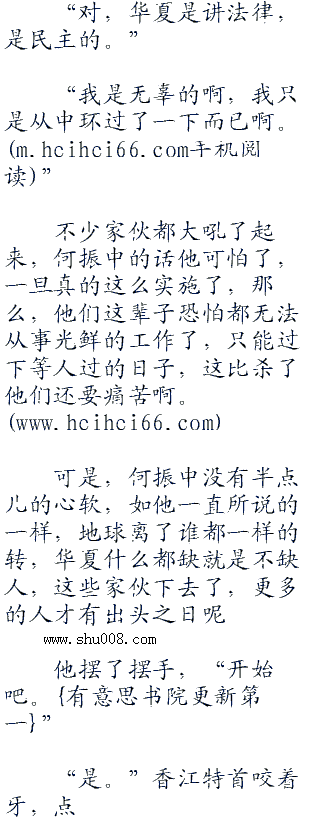 “对，华夏是讲法律，
是民主的。”
“我是无辜的啊，我只
是从中环过了一下而已啊。
(m.hcihci66.com手机阅
读)”
不少家伙都大吼了起
来，何振中的话他可怕了，
一旦真的这么实施了，那
么，他们这辈子恐怕都无法
从事光鲜的工作了，只能过
下等人过的日子，这比杀了
他们还要痛苦啊。
(www.hcihci66.com)
可是，何振中没有半点
儿的心软，如他一直所说的
一样，地球离了谁都一样的
转，华夏什么都缺就是不缺
人，这些家伙下去了，更多
的人才有出头之日呢
www.shu008.com
他摆了摆手，“开始
吧。{有意思书院更新第
一}”
“是。”香江特首咬着
牙，点